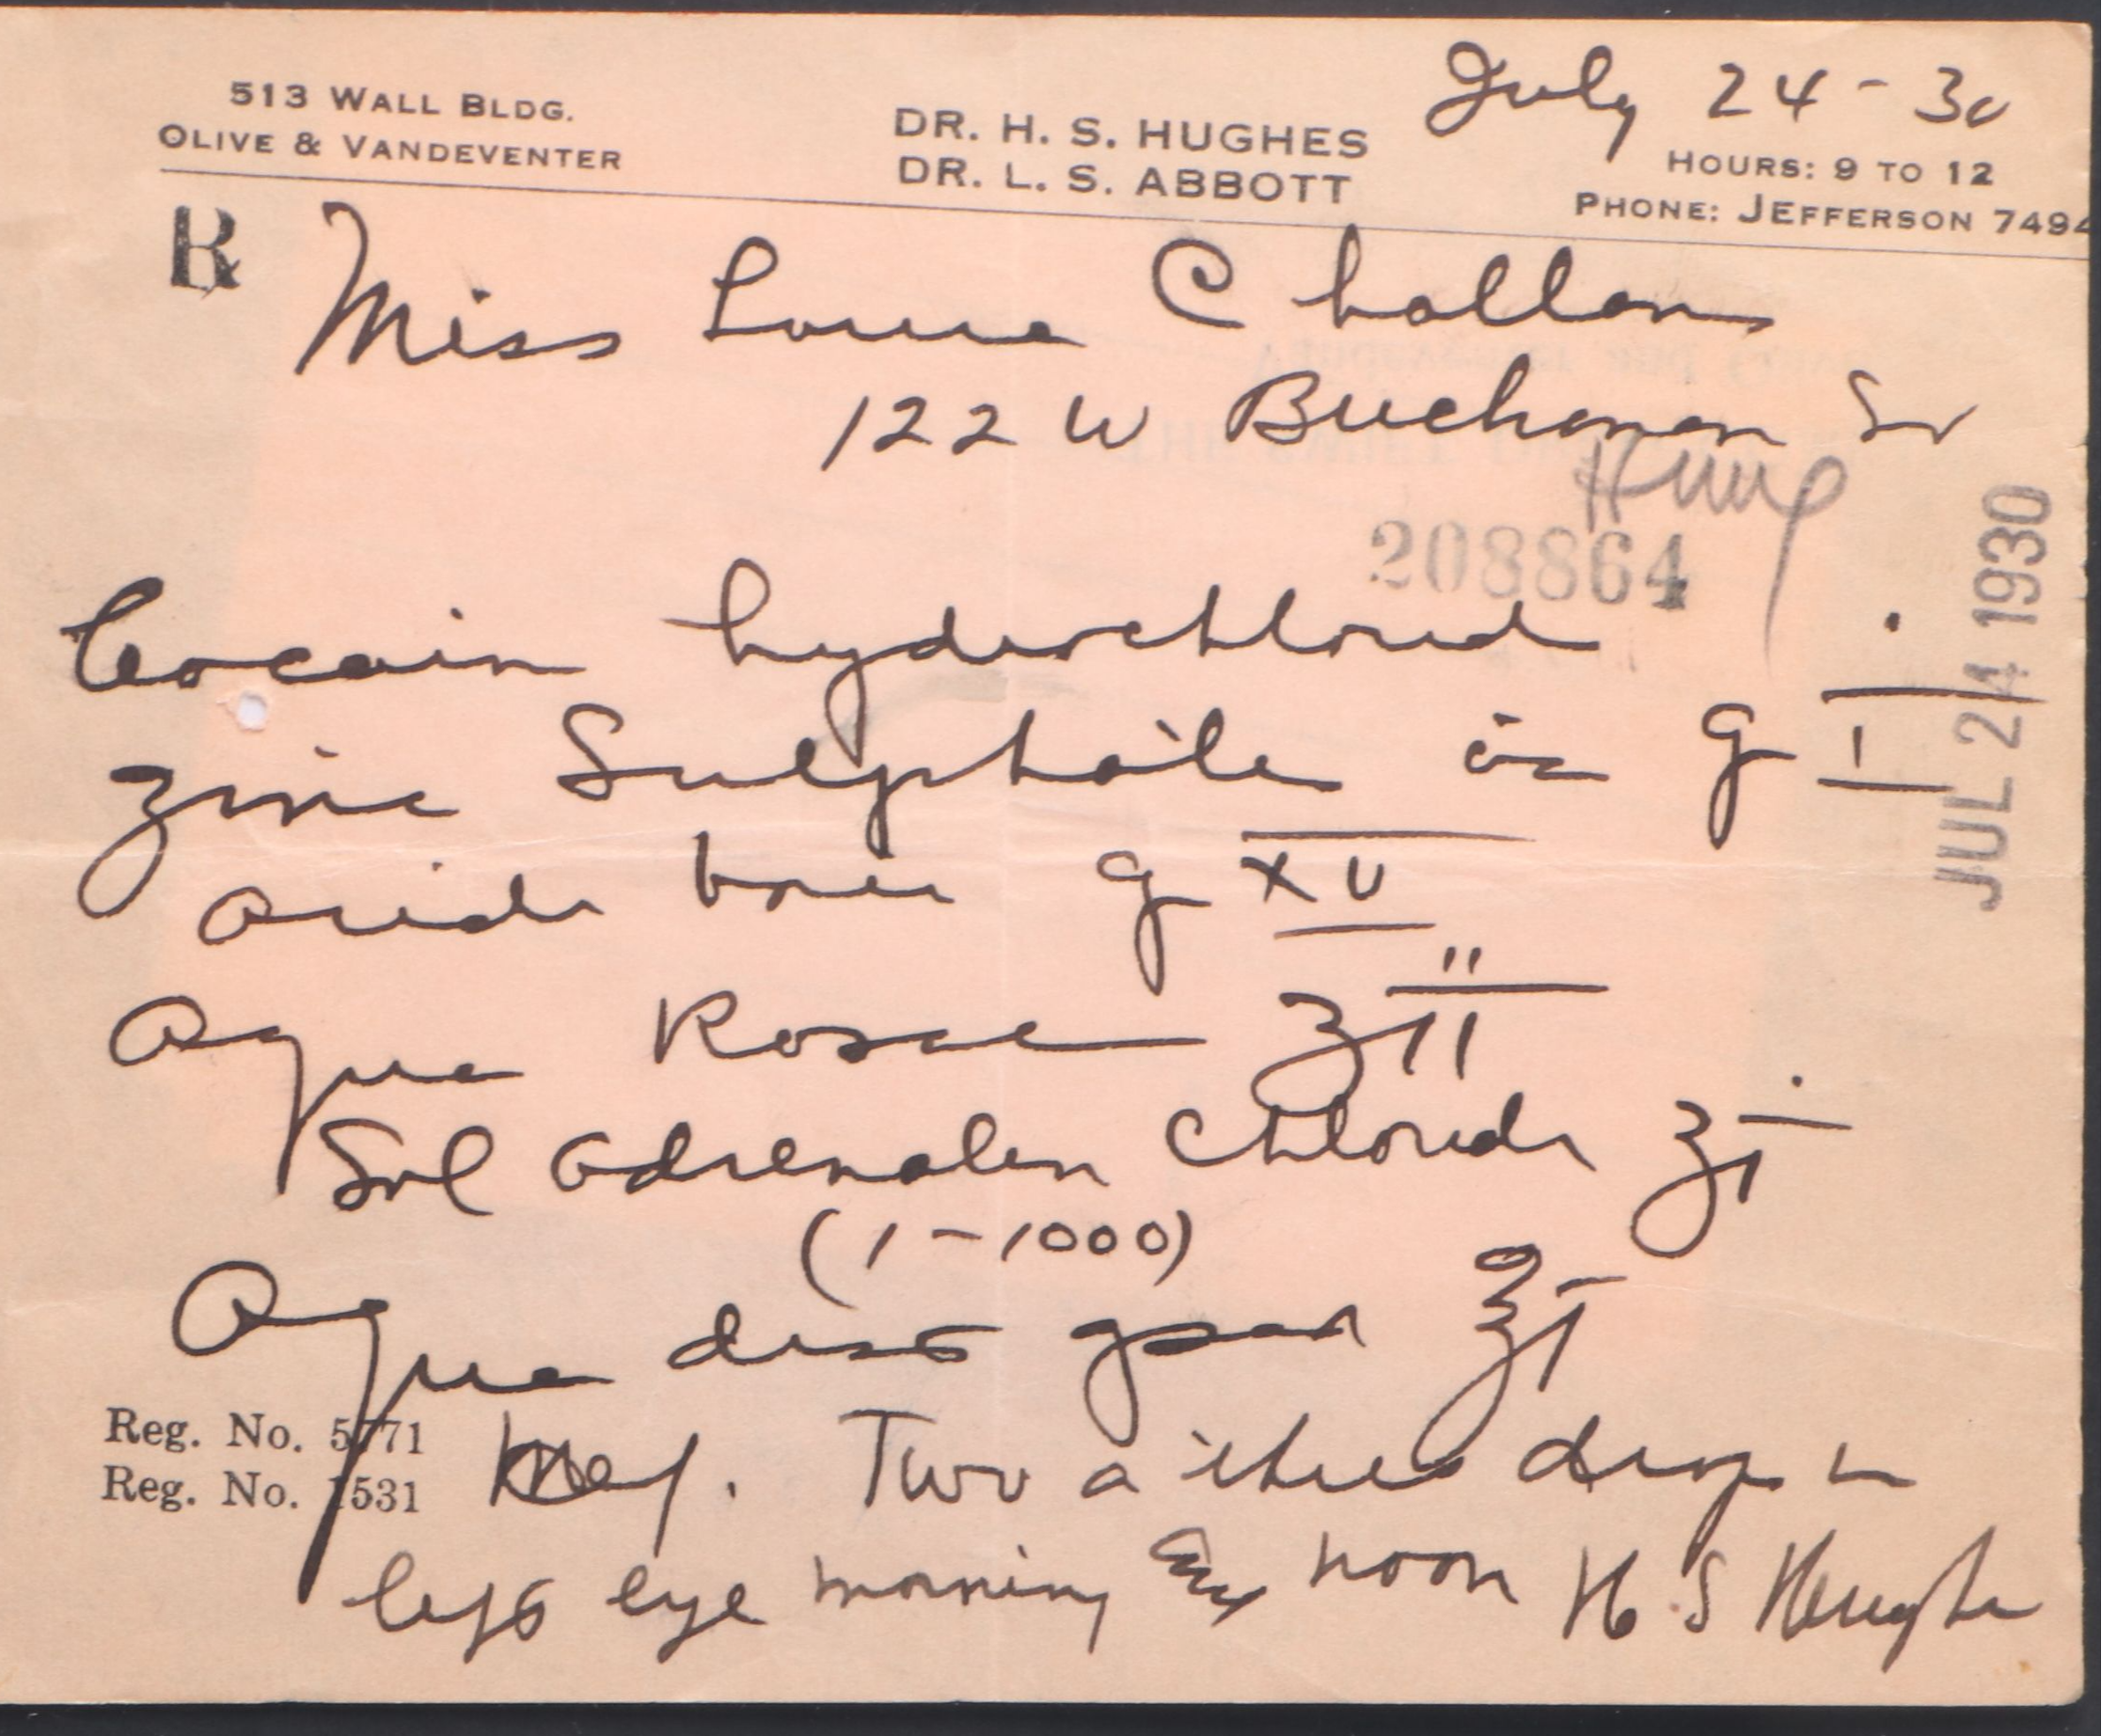 July 24-30
513 WALL BLDG.
OLIVE & VANDEVENTER
DR. H. S. HUGHES
DR. L. S. ABBOTT
HOURS: 9 TO 12
PHONE: JEFFERSON 7494
℞ Miss Louise
122 W Buchanan St
208864
JUL 24 1930
Cocain hydrochlorid
Zinc Sulphate aa g I
Acide boric g XV
Aqua Rosae ʒ II
Sol adrenalin chloride ʒ I
(1-1000)
Aqua dist ℥ I
Reg. No. 5771
Reg. No. 1531
Two a three drops in
left eye morning noon H S Hughes